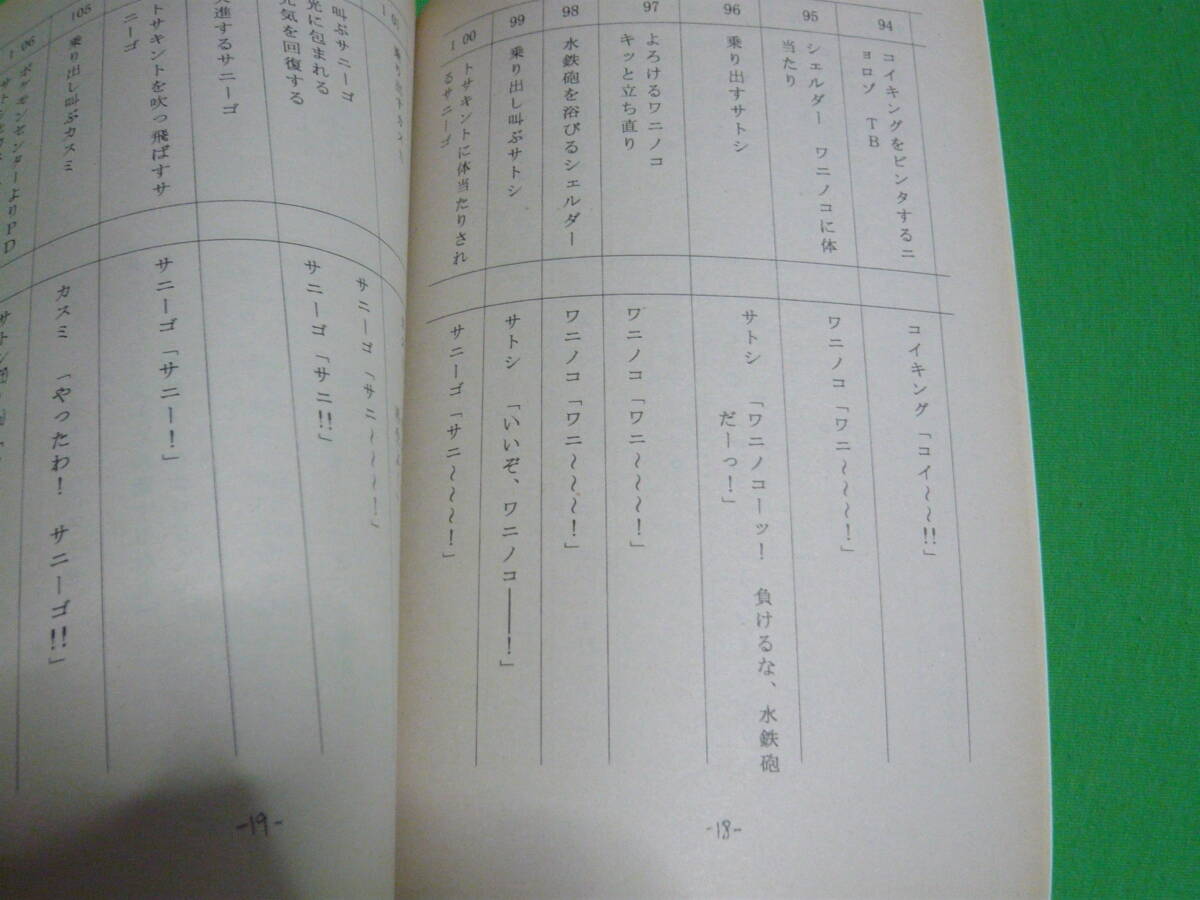 94
コイキングをビンタするニ
ョロゾ　TB
コイキング「コイ～～!!」
95
シェルダー　ワニノコに体
当たり
ワニノコ「ワニ～～～！」
96
乗り出すサトシ
サトシ　「ワニノコーッ！　負けるな、水鉄砲
だーっ！」
97
よろけるワニノコ
キッと立ち直り
ワニノコ「ワニ～～～！」
98
水鉄砲を浴びるシェルダー
ワニノコ「ワニ～～～！」
99
乗り出し叫ぶサトシ
サトシ　「いいぞ、ワニノコ――！」
100
トサキントに体当たりされ
るサニーゴ
サニーゴ「サニ～～～！」
-18-
サニーゴ「サニ～～～！」
叫ぶサニーゴ
光に包まれる
元気を回復する
サニーゴ「サニ!!」
進するサニーゴ
トサキントを吹っ飛ばすサ
ニーゴ
サニーゴ「サニー！」
105
乗り出し叫ぶカスミ
カスミ　「やったわ！　サニーゴ!!」
106
ポケモンセンターよりPD
-19-